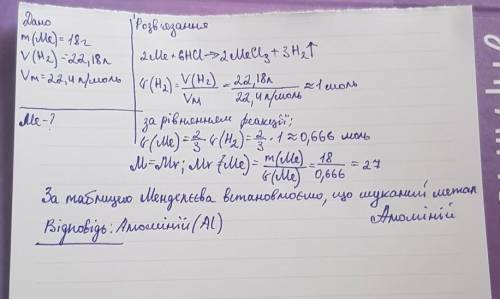 Дано
m(Me)=18г
V(H₂)=22,18л
Vm=22,4 л/моль
Me-?
Розв'язання
2Me+6HCl→2MeCl₃+3H₂↑
V(H₂)=V(H₂)/Vm=22,18л/22,4 л/моль≈1 моль
за рівнянням реакції;
V(Me)=2/3·V(H₂)=2/3·1≈0,666 моль
M=Mr; Mr(Me)=m(Me)/V(Me)=18/0,666=27
За таблицию Менделєєва встановлюємо, що шуканий метал
Алюміній
Відповідь: Алюміній (Al)